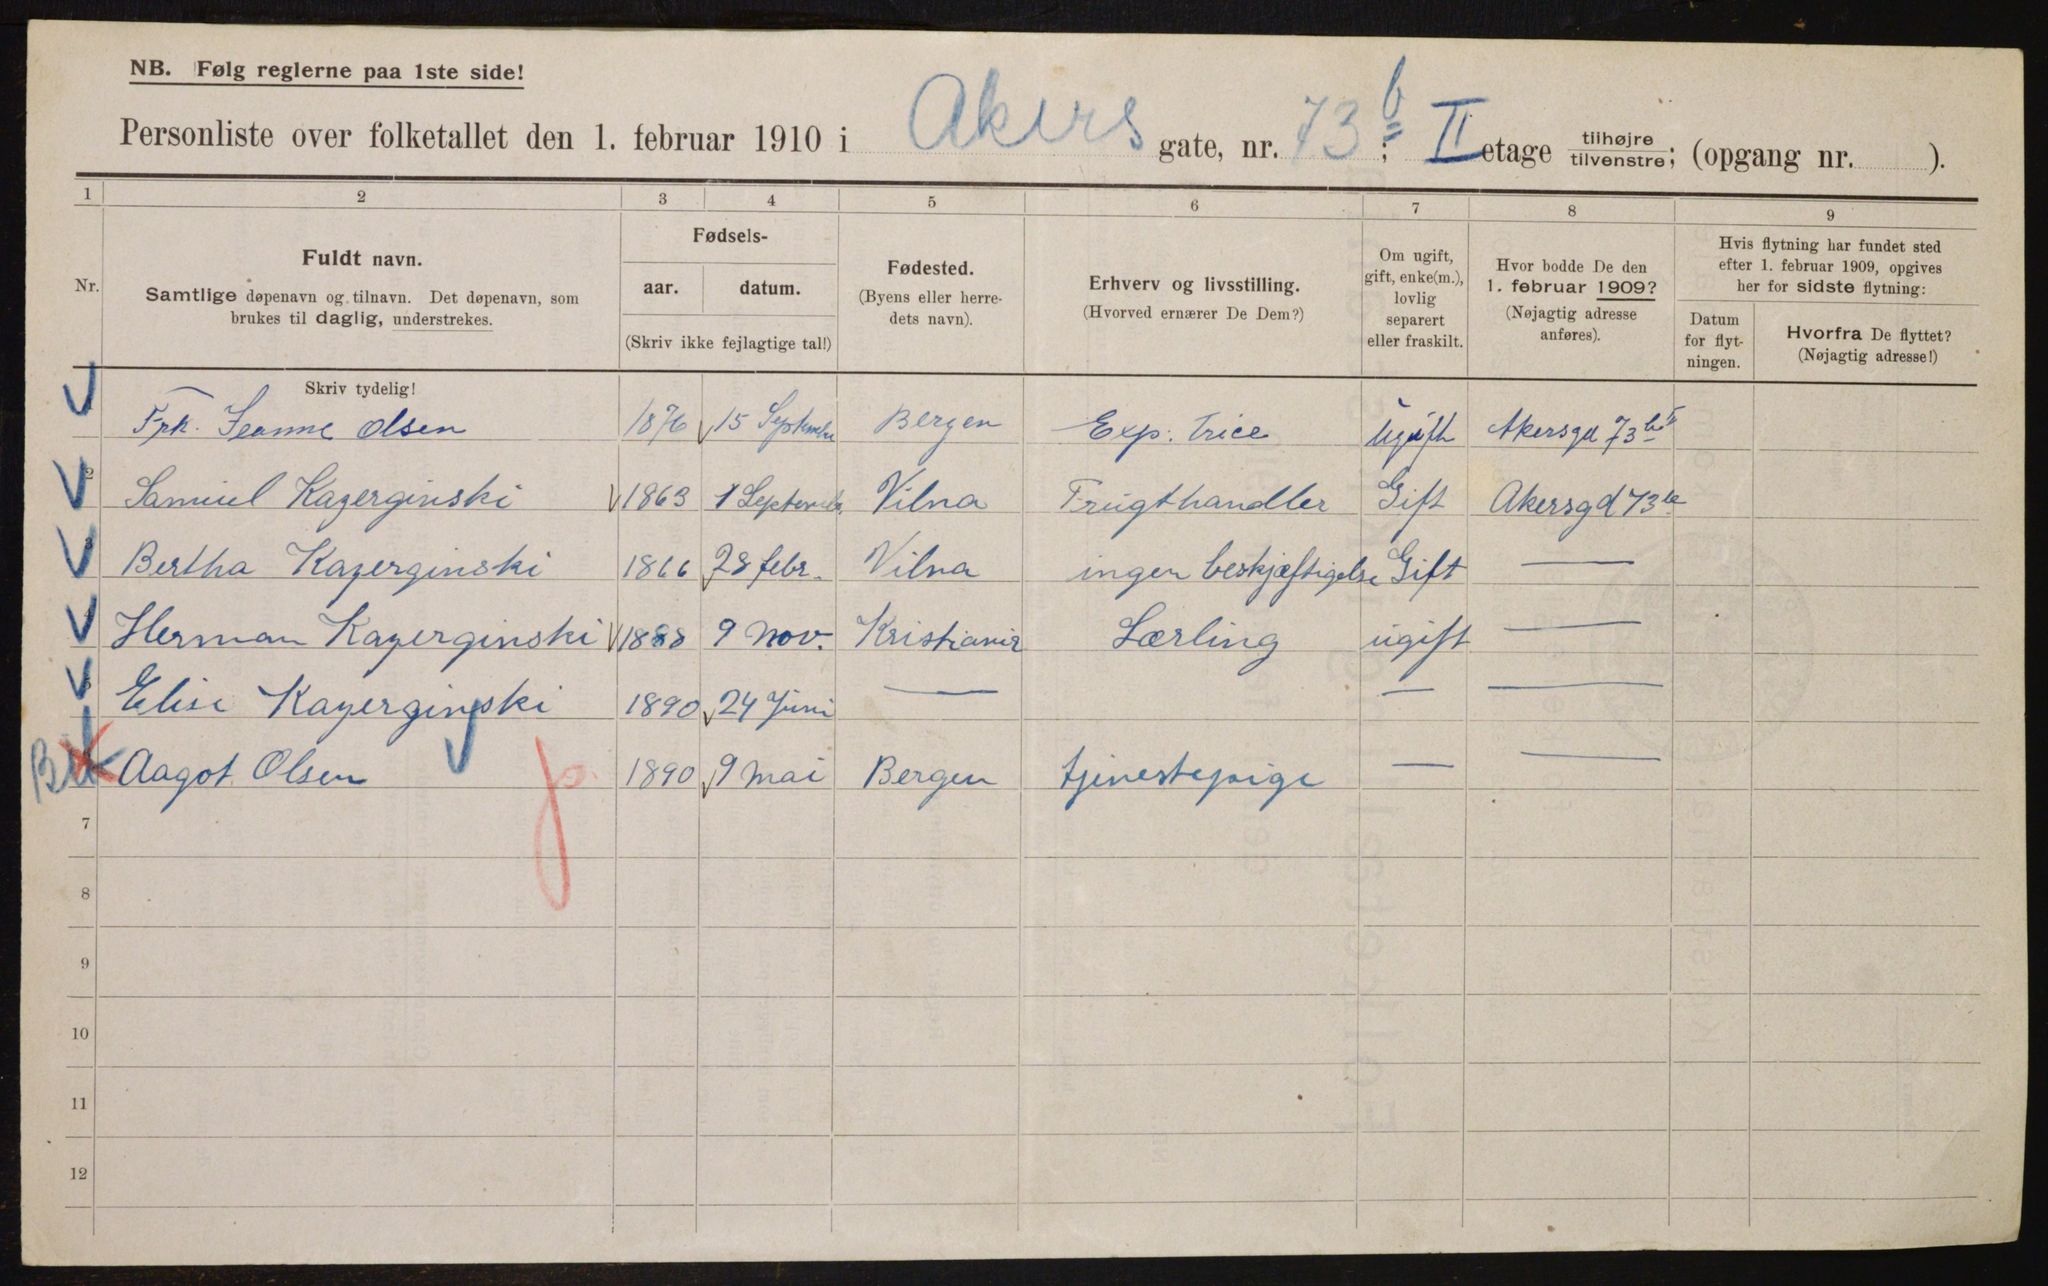 NB. Følg reglerne paa 1ste side!
Personliste over folketallet den 1. februar 1910 i Akers gate, nr. 73 b; II etage tilhøjre tilvenstre; (opgang nr. ).
1 2 3 4 5 6 7 8 9
Nr.
Fuldt navn.
Samtlige døpenavn og tilnavn. Det døpenavn, som
brukes til daglig, understrekes.
Fødsels-
aar. datum.
(Skriv ikke fejlagtige tal!)
Fødested.
(Byens eller herre-
dets navn).
Erhverv og livsstilling.
(Hvorved ernærer De Dem?)
Om ugift,
gift, enke(m.),
lovlig
separert
eller fraskilt.
Hvor bodde De den
1. februar 1909?
(Nøjagtig adresse
anføres).
Hvis flytning har fundet sted
efter 1. februar 1909, opgives
her for sidste flytning:
Datum
for flyt-
ningen.
Hvorfra De flyttet?
(Nøjagtig adresse!)
Skriv tydelig!
Frk. Jeanne Olsen 1876 15 September Bergen Exp. trice Ugift Akersgd 73 b II
2 Samuel Kazerginski 1863 1 September Vilna Frugthandler Gift Akersgd 73 b
3 Bertha Kazerginski 1866 28 febr. Vilna ingen beskjæftigelse Gift —
Herman Kazerginski 1888 9 nov. Kristiania Lærling ugift —
5 Elise Kazerginski 1890 24 Juni — — —
Aagot Olsen 1890 9 mai Bergen tjenestepige — —
7
8
9
10
11
12